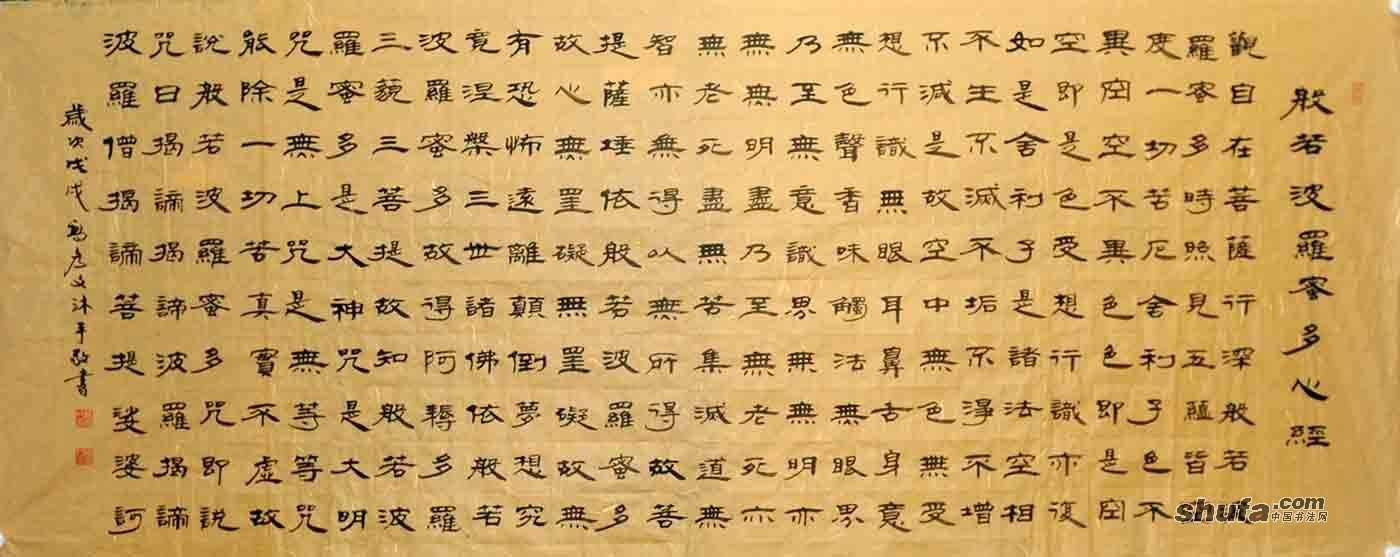 般若波羅蜜多心經
觀自在菩薩行深般若
羅蜜多時照見五蘊皆
度一切苦厄舍利子色不
異空空不異色色即是空
空即是色受想行識亦復
如是舍利子是諸法空相
不生不滅不垢不淨不增
不減是故空中無色無受
想行識無眼耳鼻舌身意
無色聲香味觸法無眼界
乃至無意識界無無明亦
無無明盡乃至無老死亦
無老死盡無苦集滅道無
智亦無得以無所得故菩
提薩埵依般若波羅蜜多
故心無罣礙無罣礙故無
有恐怖遠離顛倒夢想究
竟涅槃三世諸佛依般若
波羅蜜多故得阿耨多羅
三藐三菩提故知般若波
羅蜜多是大神咒是大明
咒是無上咒是無等等咒
能除一切苦真實不虛故
說般若波羅蜜多咒即說
咒曰揭諦揭諦波羅揭諦
波羅僧揭諦菩提娑婆訶
歲次戊戌沐手敬書
shufa.com
中国书法网